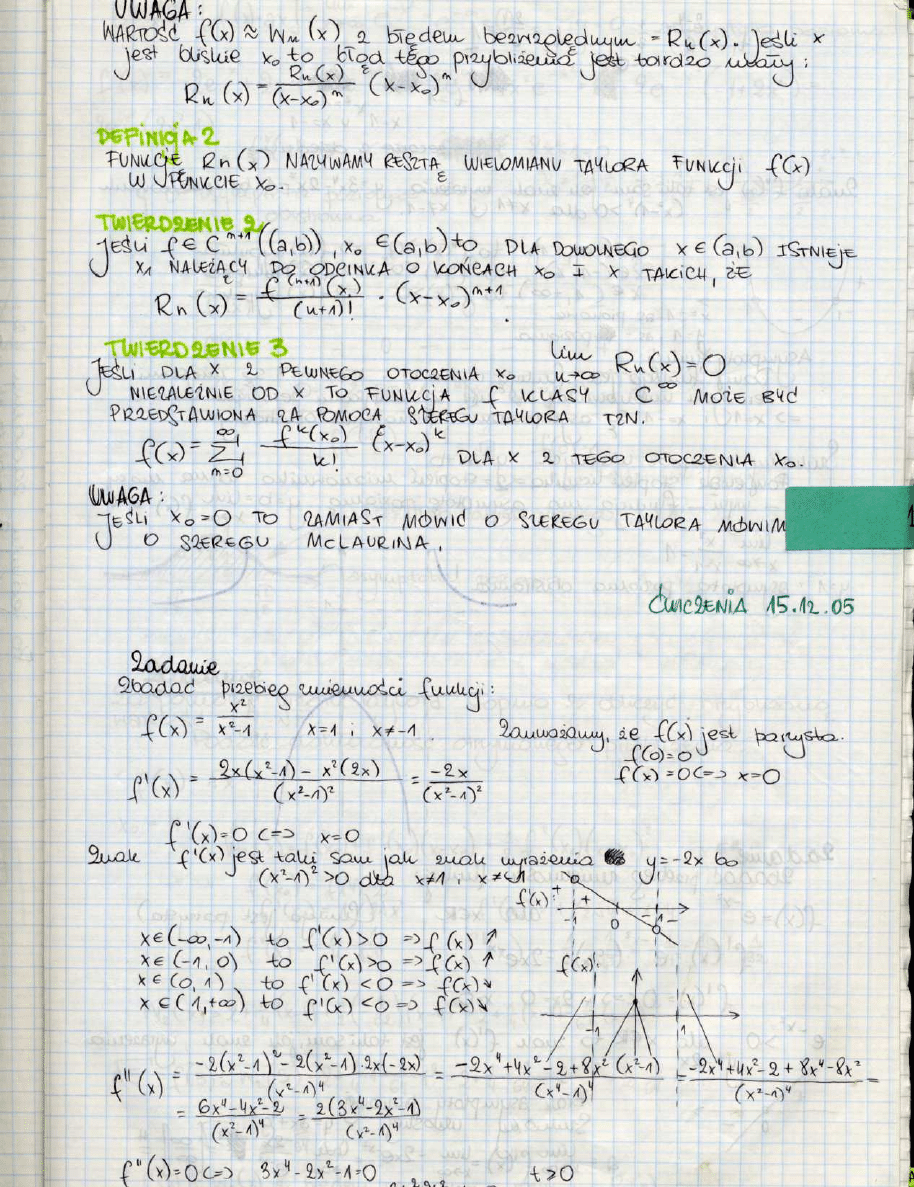 UWAGA:
WARTOŚĆ f(x) ≈ Wn(x) z błędem bezwzględnym = Rn(x). Jeśli x
jest bliskie x₀ to błąd tego przybliżenia jest bardzo mały:
Rn(x) = Rn(x)/(x-x₀)ⁿ · (x-x₀)ⁿ
DEFINICJA 2
FUNKCJĘ Rn(x) NAZYWAMY RESZTĄ WIELOMIANU TAYLORA FUNKCJI f(x)
W PUNKCIE x₀.
TWIERDZENIE 2
JEŚLI f ∈ Cⁿ⁺¹((a,b)), x₀ ∈ (a,b) to DLA DOWOLNEGO x ∈ (a,b) ISTNIEJE
x₁ NALEŻĄCY DO ODCINKA O KOŃCACH x₀ I x TAKICH, ŻE
Rn(x) = f⁽ⁿ⁺¹⁾(x₁)/(n+1)! · (x-x₀)ⁿ⁺¹
TWIERDZENIE 3
JEŚLI DLA X Z PEWNEGO OTOCZENIA x₀ lim n→∞ Rn(x) = 0
NIEZALEŻNIE OD X TO FUNKCJA f KLASY C^∞ MOŻE BYĆ
PRZEDSTAWIONA ZA POMOCĄ SZEREGU TAYLORA TZN.
f(x) = ∞ Σ n=0 fᵏ(x₀)/k! (x-x₀)ᵏ DLA X Z TEGO OTOCZENIA x₀.
UWAGA:
JEŚLI x₀=0 TO ZAMIAST MÓWIĆ O SZEREGU TAYLORA MÓWIM
O SZEREGU MCLAURINA.
ĆWICZENIA 15.12.05
Zadanie
Zbadać przebieg zmienności funkcji:
f(x) = x²/(x²-1) x=1 i x≠-1. Zauważamy, że f(x) jest parzysta.
f(0)=0
f(x)=0 <=> x=0
f'(x) = (2x(x²-1) - x²(2x))/(x²-1)² = -2x/(x²-1)²
f'(x)=0 <=> x=0
Znak f'(x) jest taki sam jak znak wyrażenia y=-2x bo
(x²-1)²>0 dla x≠1 i x≠-1
f'(x): + + -1 0 -1
x∈(-∞,-1) to f'(x)>0 => f(x) ↑
x∈(-1,0) to f'(x)>0 => f(x) ↑
x∈(0,1) to f'(x)<0 => f(x) ↘
x∈(1,+∞) to f'(x)<0 => f(x) ↘
f(x):
-1 1
f''(x) = (-2(x²-1)² - 2(x²-1)·2x(-2x))/(x²-1)⁴ = (-2x⁴+4x²-2+8x²(x²-1))/(x²-1)⁴ = (-2x⁴+4x²-2+8x⁴-8x²)/(x²-1)⁴ =
= (6x⁴-4x²-2)/(x²-1)⁴ = 2(3x⁴-2x²-1)/(x²-1)⁴
f''(x)=0 <=> 3x⁴-2x²-1=0 t≥0